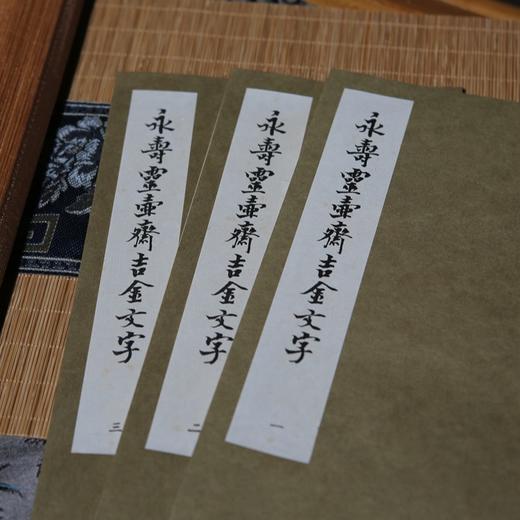 永壽靈壺齋吉金文字
三
永壽靈壺齋吉金文字
二
永壽靈壺齋吉金文字
一